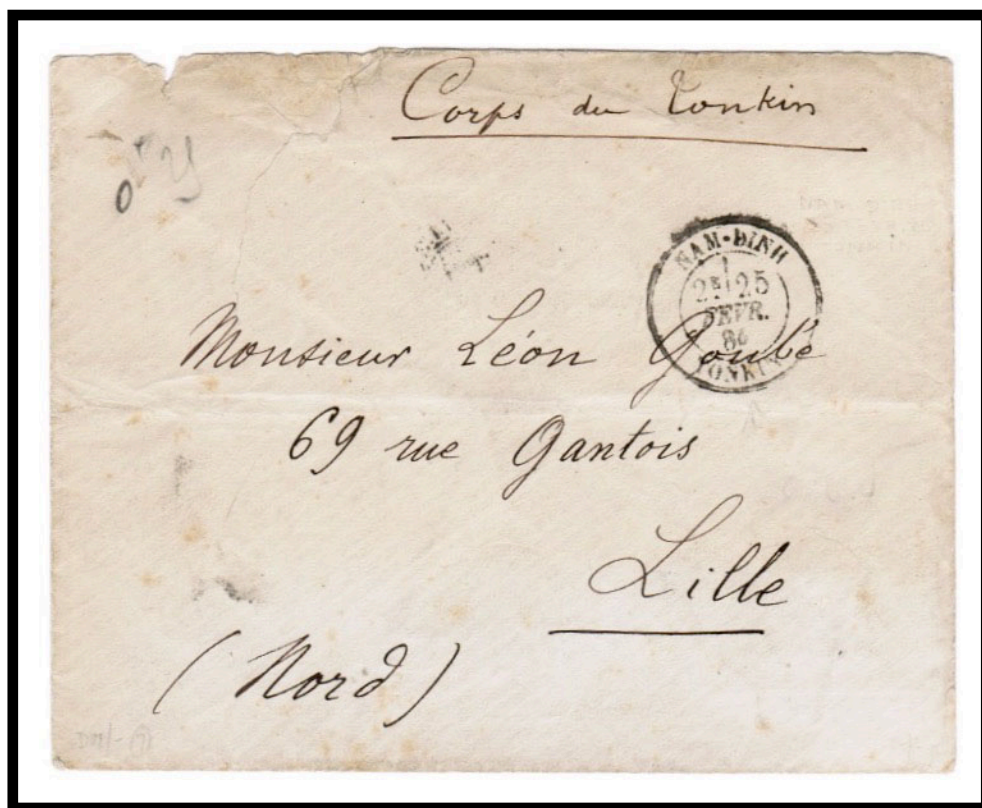 Corps du Tonkin
NAM-DINH
25
FEVR.
TONKIN
Monsieur Léon
69 rue Gantois
Lille
(Nord)